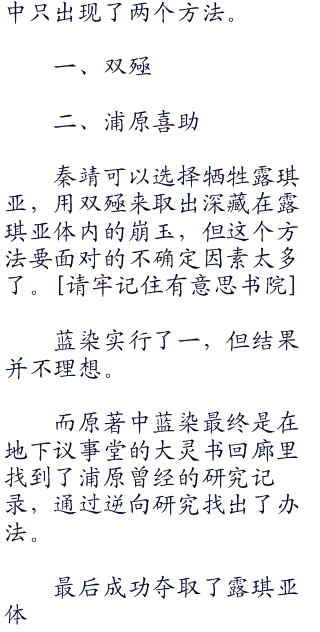 中只出现了两个方法。
一、双殛
二、浦原喜助
秦靖可以选择牺牲露琪
亚，用双殛来取出深藏在露
琪亚体内的崩玉，但这个方
法要面对的不确定因素太多
了。[请牢记住有意思书院]
蓝染实行了一，但结果
并不理想。
而原著中蓝染最终是在
地下议事堂的大灵书回廊里
找到了浦原曾经的研究记
录，通过逆向研究找出了办
法。
最后成功夺取了露琪亚
体